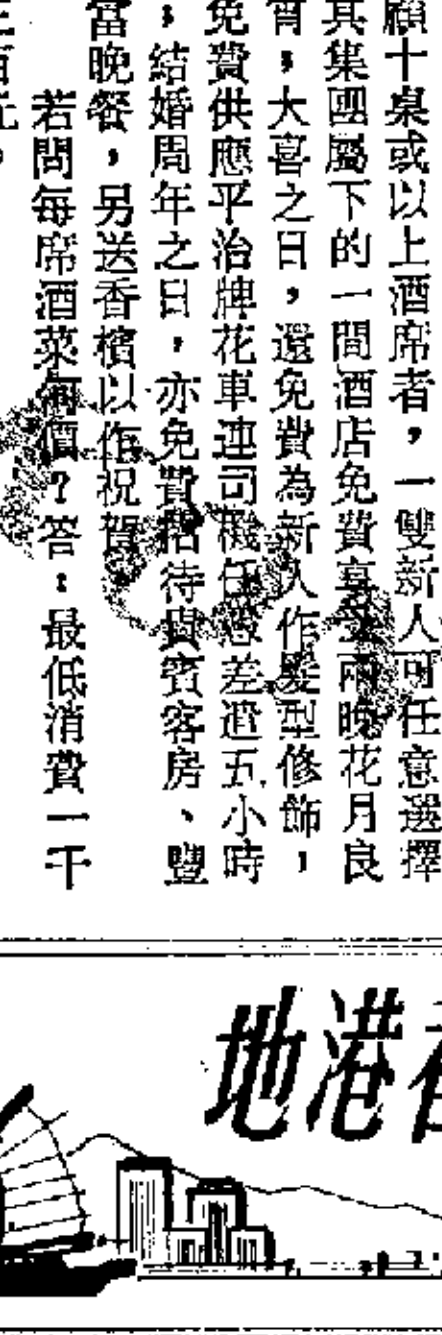 顧十桌或以上酒席者，一雙新人可任意選擇
其集團屬下的一間酒店免費享受兩晚花月良
宵，大喜之日，還免費為新人作髮型修飾，
免費供應平治牌花車連司機任憑差遣五小時
；結婚周年之日，亦免費招待貴賓客房、豐
富晚餐，另送香檳以作祝賀
若問每席酒菜何價？答：最低消費一千
百元。
港地